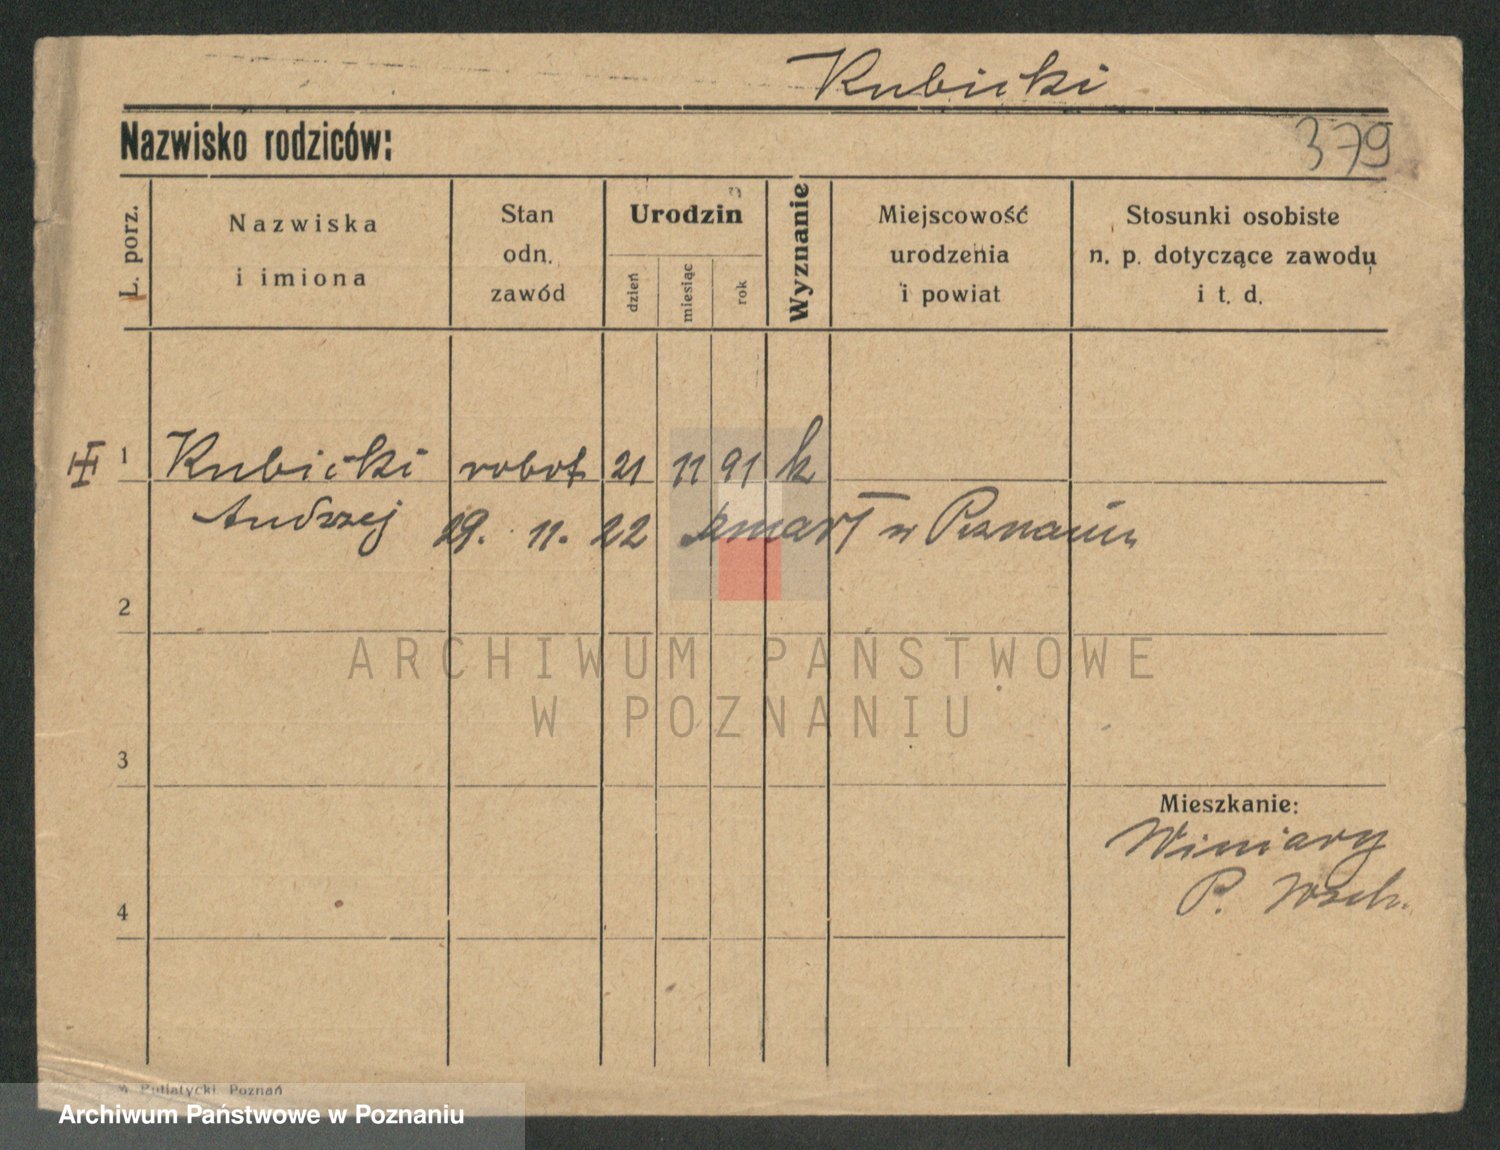 Kubicki
Nazwisko rodziców:
379
L. porz.
Nazwiska
i imiona
Stan
odn.
zawód
Urodzin
dzień
miesiąc
rok
Wyznanie
Miejscowość
urodzenia
i powiat
Stosunki osobiste
n. p. dotyczące zawodu
i t. d.
1 Kubicki robot 21 11 91 k
Andrzej 29. 11. 22 zmarł w Poznaniu
2
ARCHIWUM PAŃSTWOWE
W POZNANIU
3
Mieszkanie:
Winiary
P. Wsch.
4
Putiatycki, Poznań
Archiwum Państwowe w Poznaniu